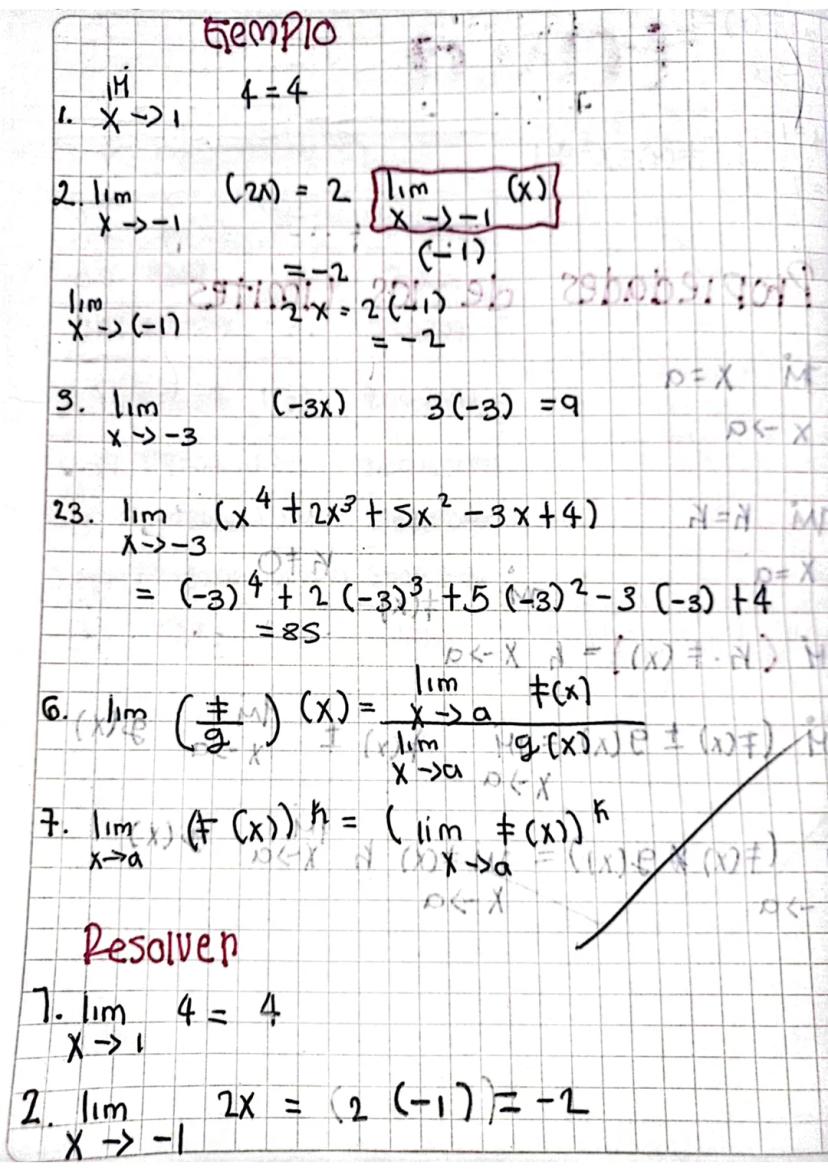 Ejemplo
1. lim x→1 4 = 4
2. lim x→-1 (2x) = 2 lim x→-1 (x)
(-1)
= -2
lim x→(-1) 2·x = 2(-1)
= -2
3. lim x→-3 (-3x) 3(-3) = 9
23. lim x→-3 (x⁴ + 2x³ + 5x² - 3x + 4)
= (-3)⁴ + 2(-3)³ + 5(-3)² - 3(-3) + 4
= 85
6. lim (f/g)(x) = lim x→a f(x) / lim x→a g(x)
7. lim x→a (f(x))ᵏ = (lim x→a f(x))ᵏ
Resolver
1. lim x→1 4 = 4
2. lim x→-1 2x = (2(-1)) = -2